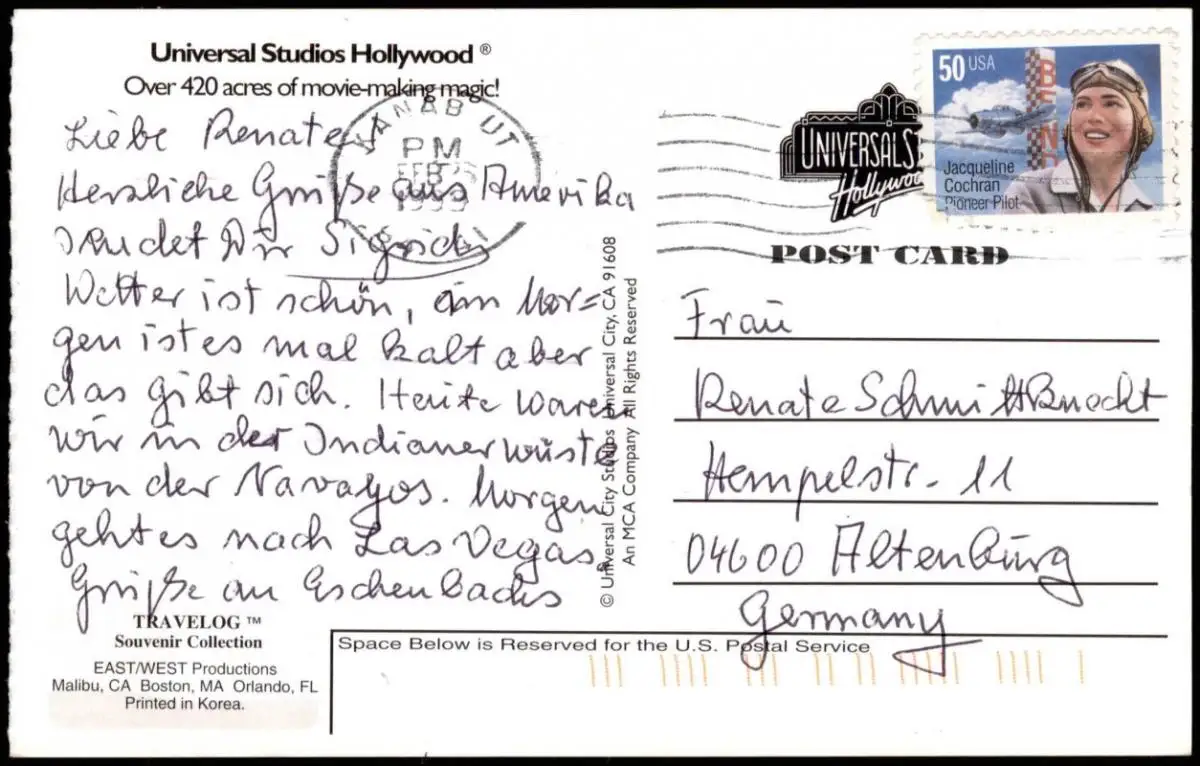 Universal Studios Hollywood ®
Over 420 acres of movie-making magic!
Liebe Renate!
Herzliche Grüße aus Amerika
sendet Dir Sigrid
Wetter ist schön, am Mor=
gen ist es mal kalt aber
das gibt sich. Heute waren
wir in der Indianerwüste
von der Navayos. Morgen
geht es nach Las Vegas.
Grüße an Eschenbachs
TRAVELOG ™
Souvenir Collection
EAST/WEST Productions
Malibu, CA Boston, MA Orlando, FL
Printed in Korea.
KANAB UT
PM
FEB
© Universal City Studios Universal City, CA 91608
An MCA Company All Rights Reserved
UNIVERSAL ST
Hollywoo
50 USA
BEND
Jacqueline
Cochran
Pioneer Pilot
POST CARD
Frau
Renate Schmittknecht
Hempelstr. 11
04600 Altenburg
Germany
Space Below is Reserved for the U.S. Postal Service